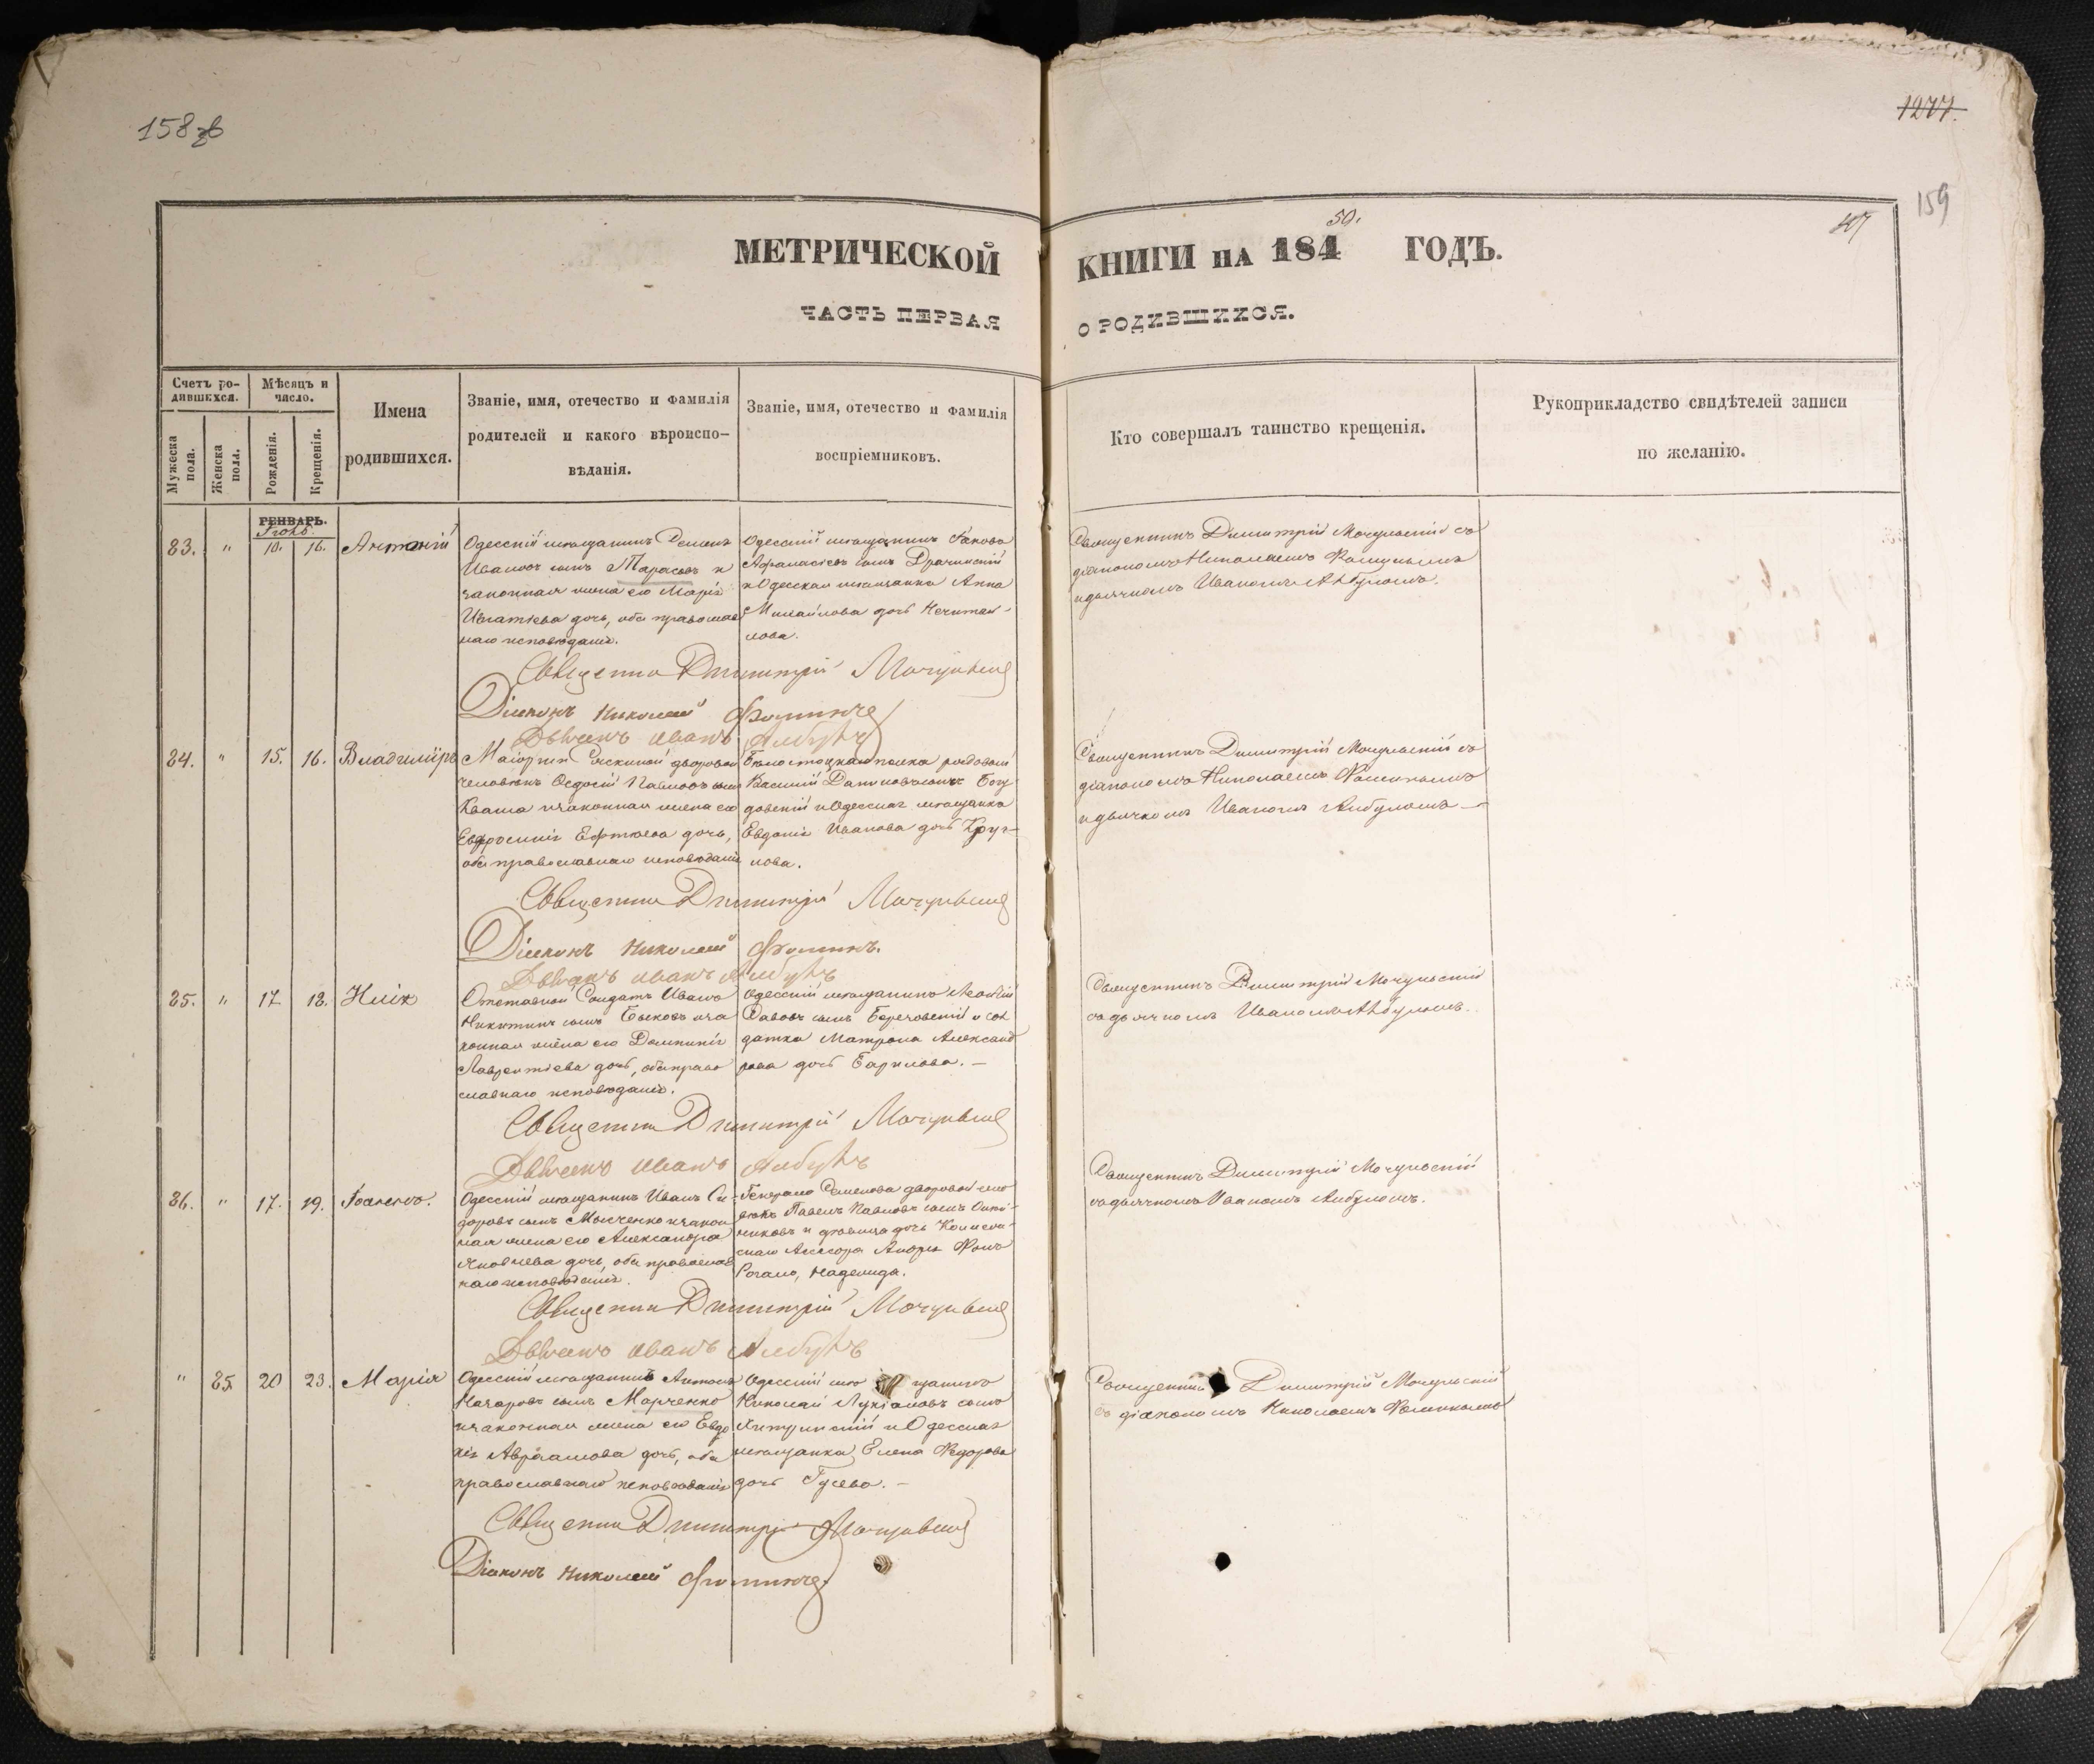 158 об
1277.
159
107
МЕТРИЧЕСКОЙ КНИГИ НА 184 50. ГОДЪ.
ЧАСТЬ ПЕРВАЯ О РОДИВШИХСЯ.
Счетъ ро-
дившихся.
Мужеска пола.
Женска пола.
Мѣсяцъ и число.
Рожденія.
Крещенія.
Имена
родившихся.
Званіе, имя, отечество и фамилія
родителей и какого вѣроиспо-
вѣданія.
Званіе, имя, отечество и фамилія
воспріемниковъ.
Кто совершалъ таинство крещенія.
Рукоприкладство свидѣтелей записи
по желанію.
ГЕНВАРЬ.
83. " 10. 16. Антоній
Одесскій мѣщанинъ Семенъ
Ивановъ сынъ Тарасовъ и
законная жена его Марія
Игнатіева дочь, оба православ
наго исповѣданія.
Одесскій мѣщанинъ Іаковъ
Афанасіевъ сынъ Драчинскій
и Одесская мѣщанка Анна
Михайлова дочь Нечитай-
лова.
Священникъ Димитрій Мочульскій съ
діакономъ Николаемъ Фоминымъ
и дьячкомъ Иваномъ Албуломъ.
Священникъ Димитрій Мочульскій
Діаконъ Николай Фоминъ
Дьячекъ Иванъ
84. " 15. 16. Владиміръ
дворовой
человѣкъ Ѳедосій Павловъ сынъ
Кваша и законная жена его
Евфросинія Ефтіева дочь,
оба православнаго исповѣданія
Бѣлостоцкаго полка рядовой
Василій Даниловъ сынъ
и Одесская мѣщанка
Евдокія Иванова дочь Круг-
лова.
Священникъ Димитрій Мочульскій съ
діакономъ Николаемъ Фоминымъ
и дьячкомъ Иваномъ Албуломъ
Священникъ Димитрій Мочульскій
Діаконъ Николай Фоминъ.
Дьячекъ Иванъ
85. " 17 18. Юлія
Отставной Солдатъ Иванъ
Никитинъ сынъ Быковъ и за
конная жена его Домникія
Лаврентіева дочь, оба право
славнаго исповѣданія.
Одесскій мѣщанинъ Леонтій
Савовъ сынъ Березовскій и сол
датка Матрона Александ
рова дочь Гаврилова.
Священникъ Димитрій Мочульскій
съ дьячкомъ Иваномъ Албуломъ.
Священникъ Димитрій Мочульскій
Дьячекъ Иванъ
86. " 17. 19. Іоаннъ.
Одесскій мѣщанинъ Иванъ Си-
доровъ сынъ Мысченко и закон
ная жена его Александра
Яковлева дочь, оба православ
наго исповѣданія.
Генерала Семенова дворовой чело
вѣкъ Павелъ Павловъ сынъ
и дѣвица дочь Коллеж-
скаго Ассесора Андрея Фонъ
Надежда.
Священникъ Димитрій Мочульскій
съ дьячкомъ Иваномъ Албуломъ.
Священникъ Димитрій Мочульскій
Дьячекъ Иванъ
" 85 20 23. Марія
Одесскій мѣщанинъ Антонъ
Назаровъ сынъ Марченко
и законная жена его Евдо
кія Авраамова дочь, оба
православнаго исповѣданія
Одесскій мѣщанинъ
Николай Лукіановъ сынъ
и Одесская
мѣщанка Елена Федорова
дочь Гусева.
Священникъ Димитрій Мочульскій
съ діакономъ Николаемъ Фоминымъ
Священникъ Димитрій Мочульскій
Діаконъ Николай Фоминъ.